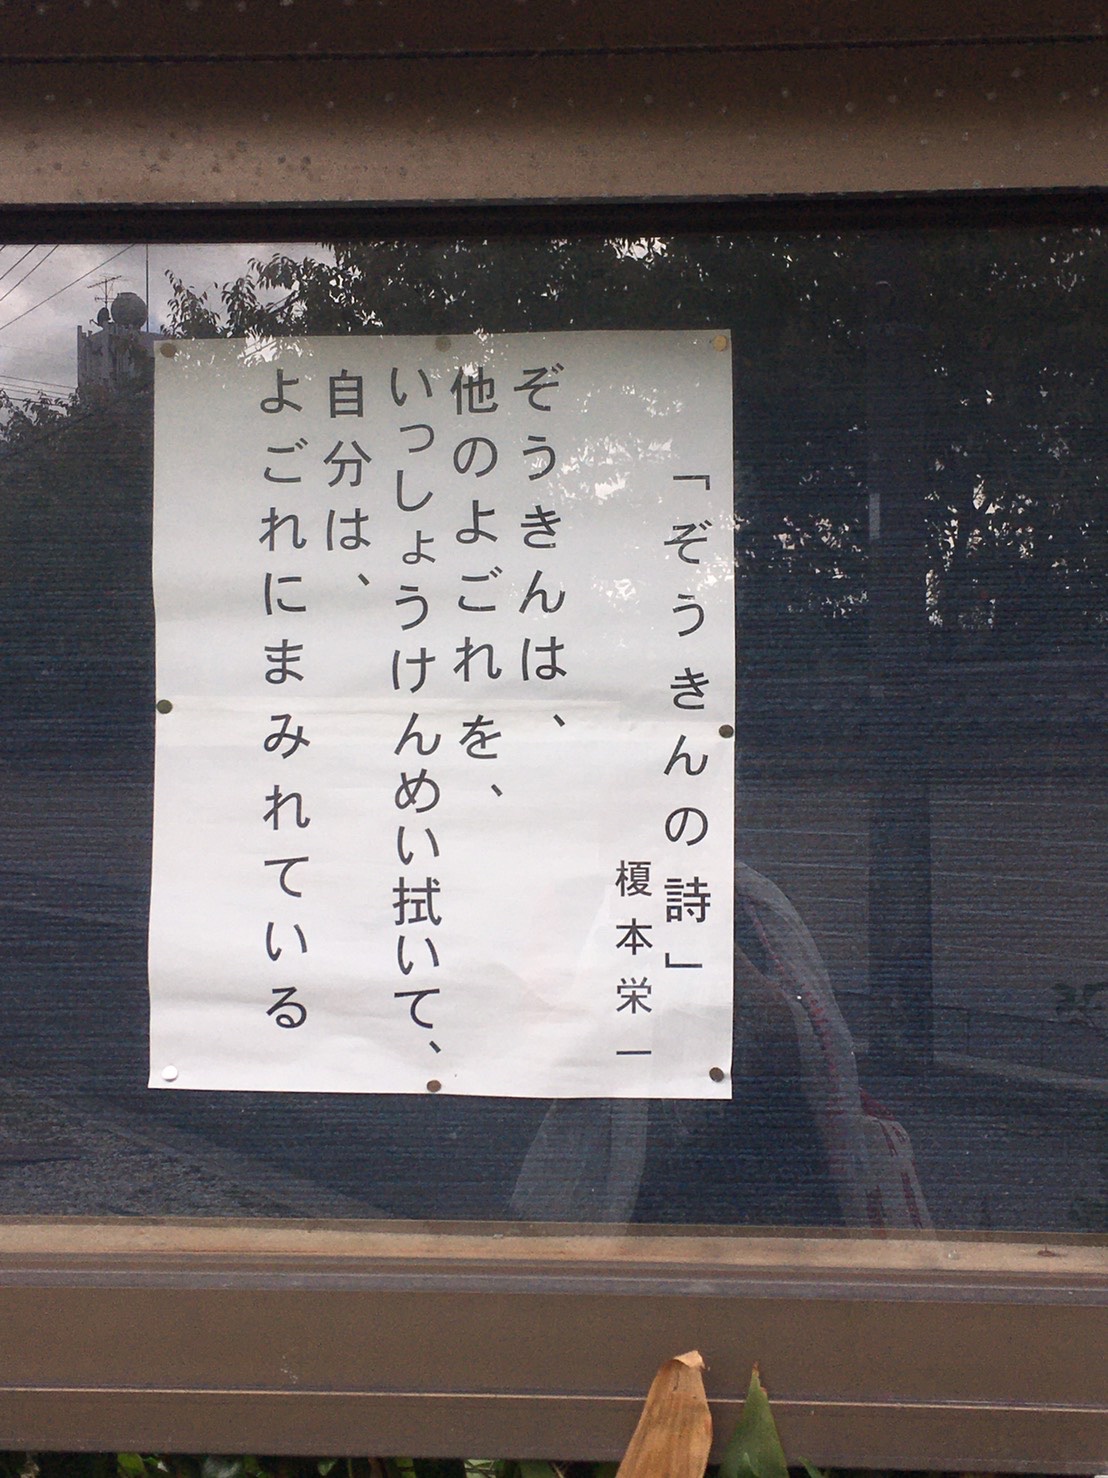 「ぞうきんの詩」
榎本栄一
ぞうきんは、
他のよごれを、
いっしょうけんめい拭いて、
自分は、
よごれにまみれている